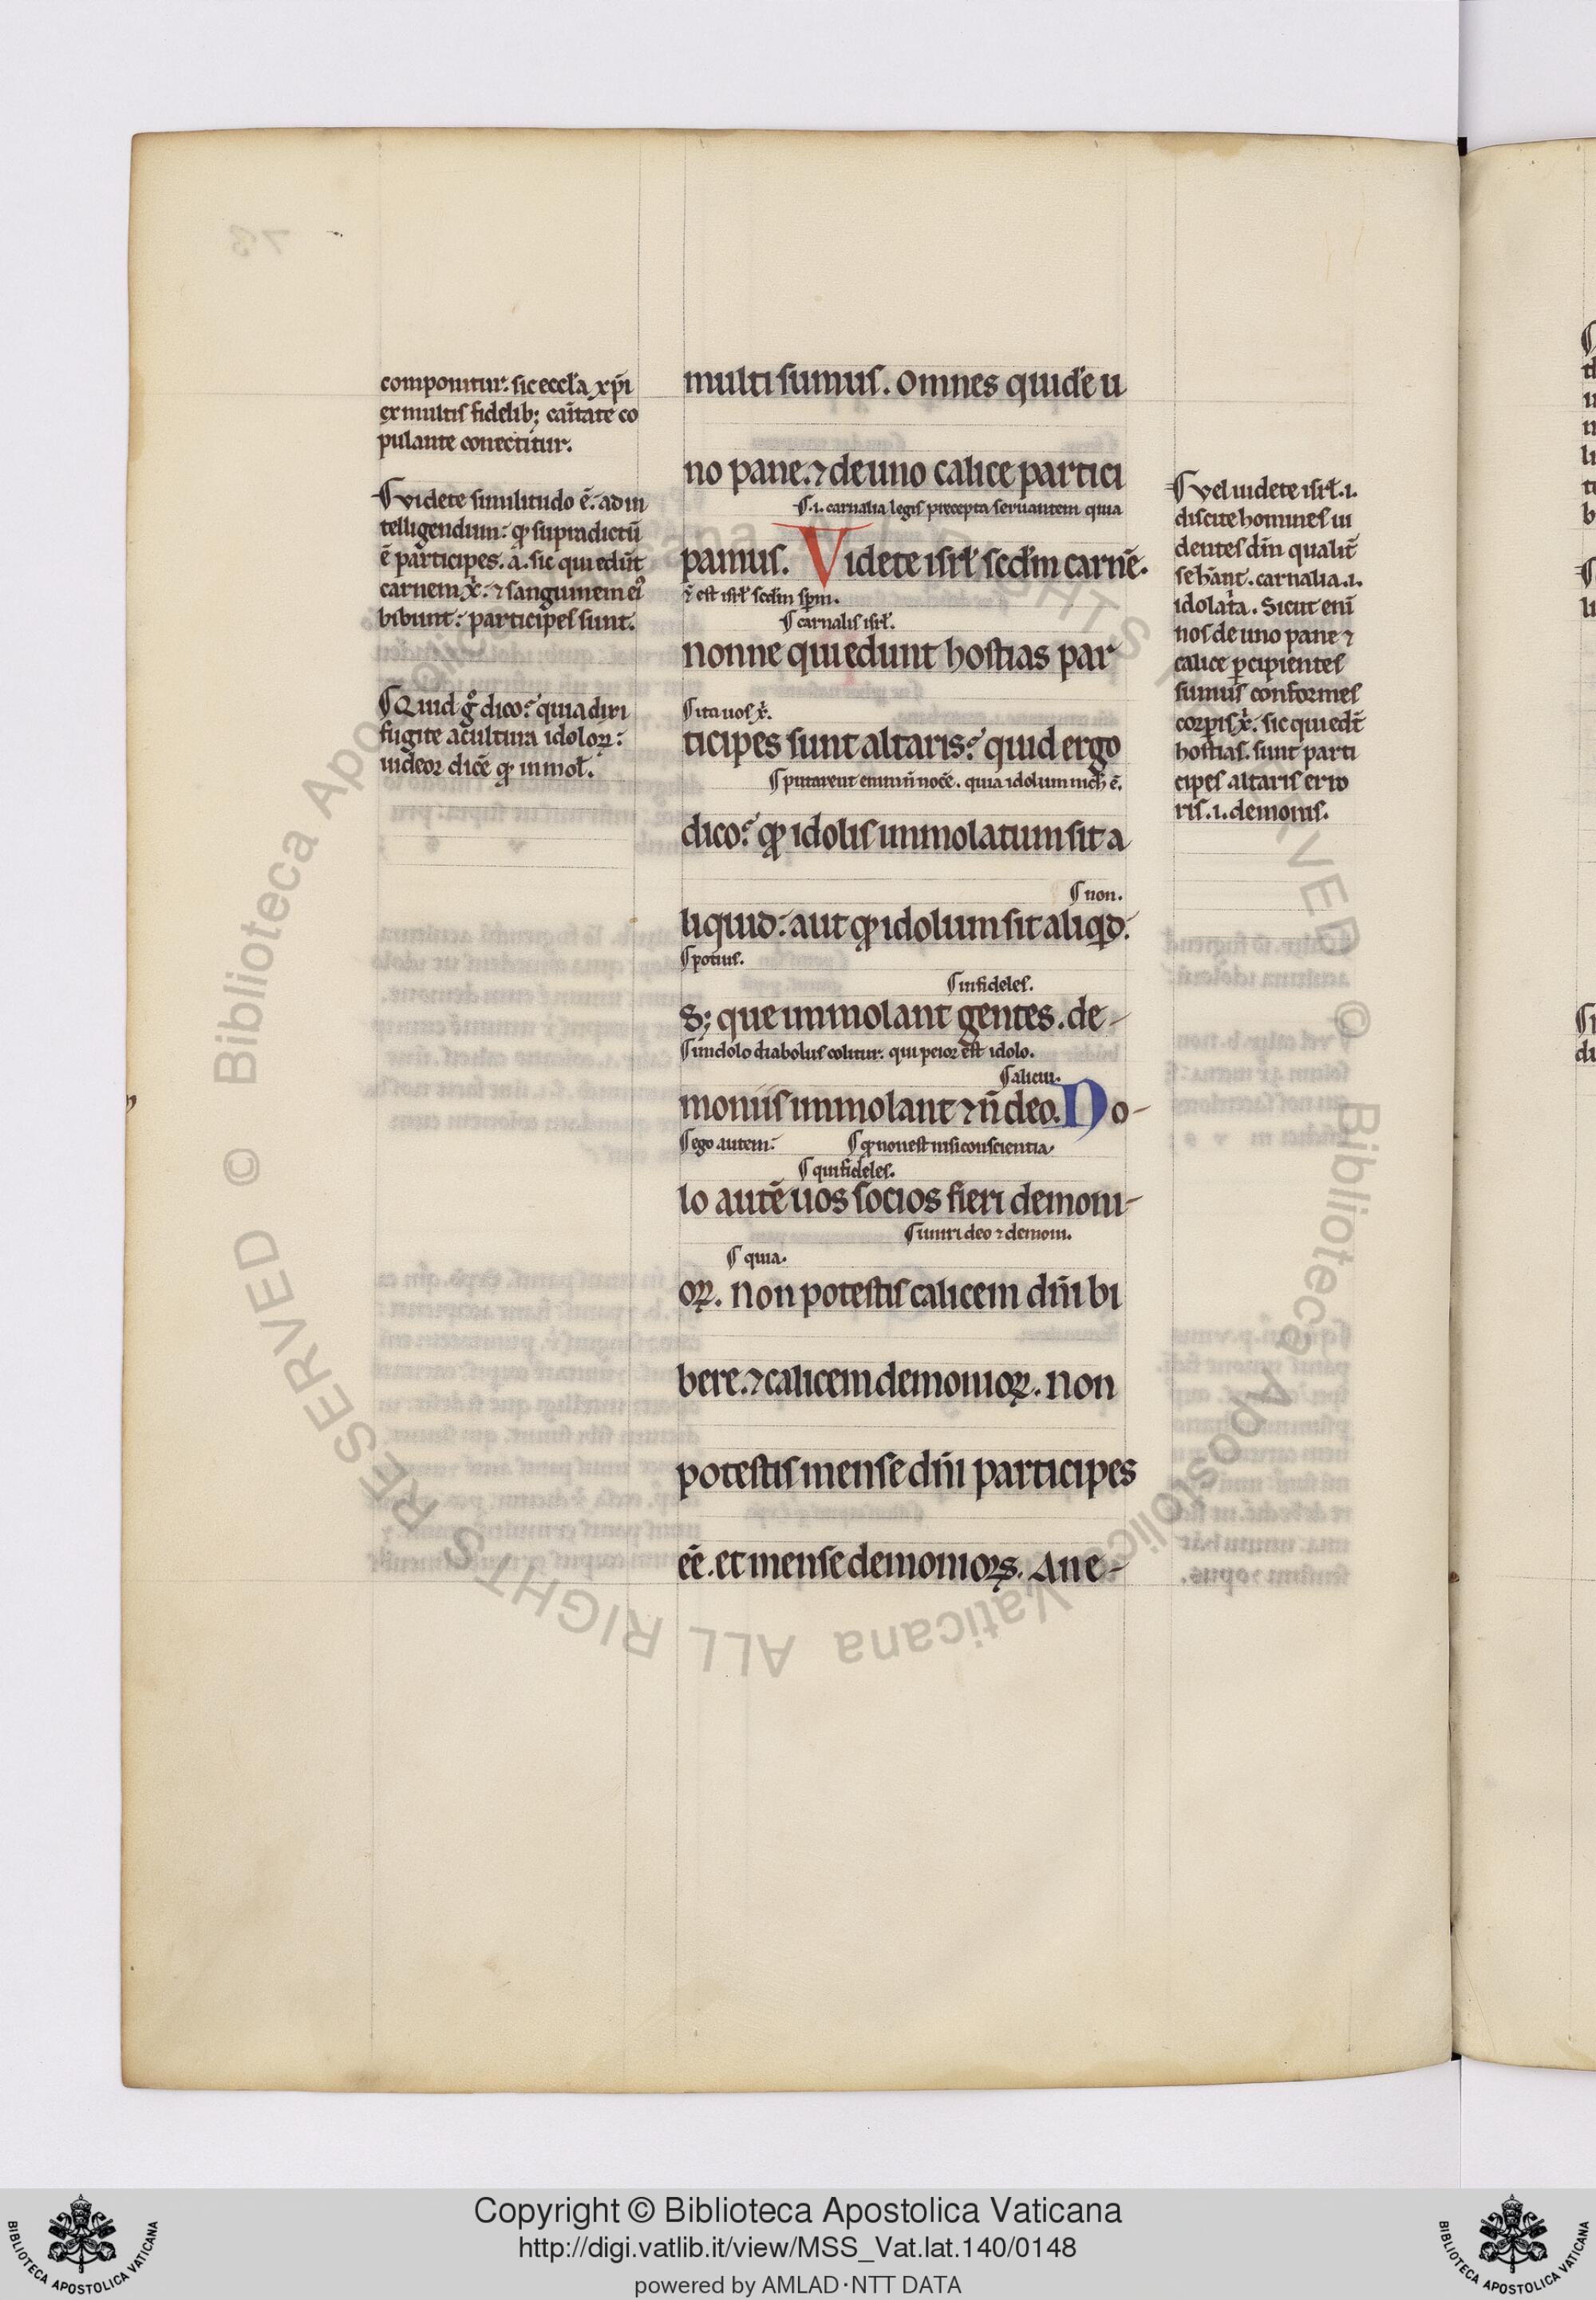 componitur. sic eccl'a xp̄i
ex multis fidelib; caritate co
pulante conectitur.
¶ Videte similitudo ē. ad in
telligendum. qꝫ supradictū
ē participes. a. sic qui edūt
carnem x̄. ⁊ sanguinem eiꝰ
bibunt. participes sunt.
¶ Quid gͦ dico. quia dixi
fugite a cultura idoloꝝ.
uideor dicē qꝫ inmol̄.
multi sumus. omnes quidē u
no pane. ⁊ de uno calice partici
¶ .i. carnalia legis precepta seruantem quia
pamus. Videte isrl' scd'm carnē.
⁊ est isrl' scd'm sp̄m.
¶ carnalis isrl'.
nonne qui edunt hostias par
¶ ita uos x̄.
ticipes sunt altaris. quid ergo
¶ putarent enim n̄ nocē. quia idolum nich' ē.
dico. qꝫ idolis immolatum sit a
¶ non.
liquid. aut qꝫ idolum sit aliqd.
¶ potius.
¶ infideles.
S; que immolant gentes. de-
¶ in idolo diabolus colitur. qui peior est idolo.
¶ alicui.
moniis immolant ⁊ n̄ deo. No-
¶ ego autem. ¶ qꝫ non est nisi conscientia.
¶ qui fideles.
lo autē uos socios fieri demoni-
¶ iungi deo ⁊ demoni.
¶ quia.
oꝝ. non potestis calicem dn̄i bi
bere. ⁊ calicem demonioꝝ. non
potestis mense dn̄i participes
eē. et mense demonioꝝ. An e-
¶ Vel uidete isrl'. .i.
discite homines ui
dentes dm̄ qualit̄
se hānt. carnalia .i.
idolatͥa. Sicut enī
nos de uno pane ⁊
calice ꝑcipientes
sumus conformes
corpis x̄. sic qui edt̄
hostias. sunt parti
cipes altaris erro
ris .i. demonis.
Copyright © Biblioteca Apostolica Vaticana
http://digi.vatlib.it/view/MSS_Vat.lat.140/0148
powered by AMLAD·NTT DATA
BIBLIOTECA APOSTOLICA VATICANA
BIBLIOTECA APOSTOLICA VATICANA
© Biblioteca Apostolica Vaticana ALL RIGHTS RESERVED
© Biblioteca Apostolica Vaticana ALL RIGHTS RESERVED